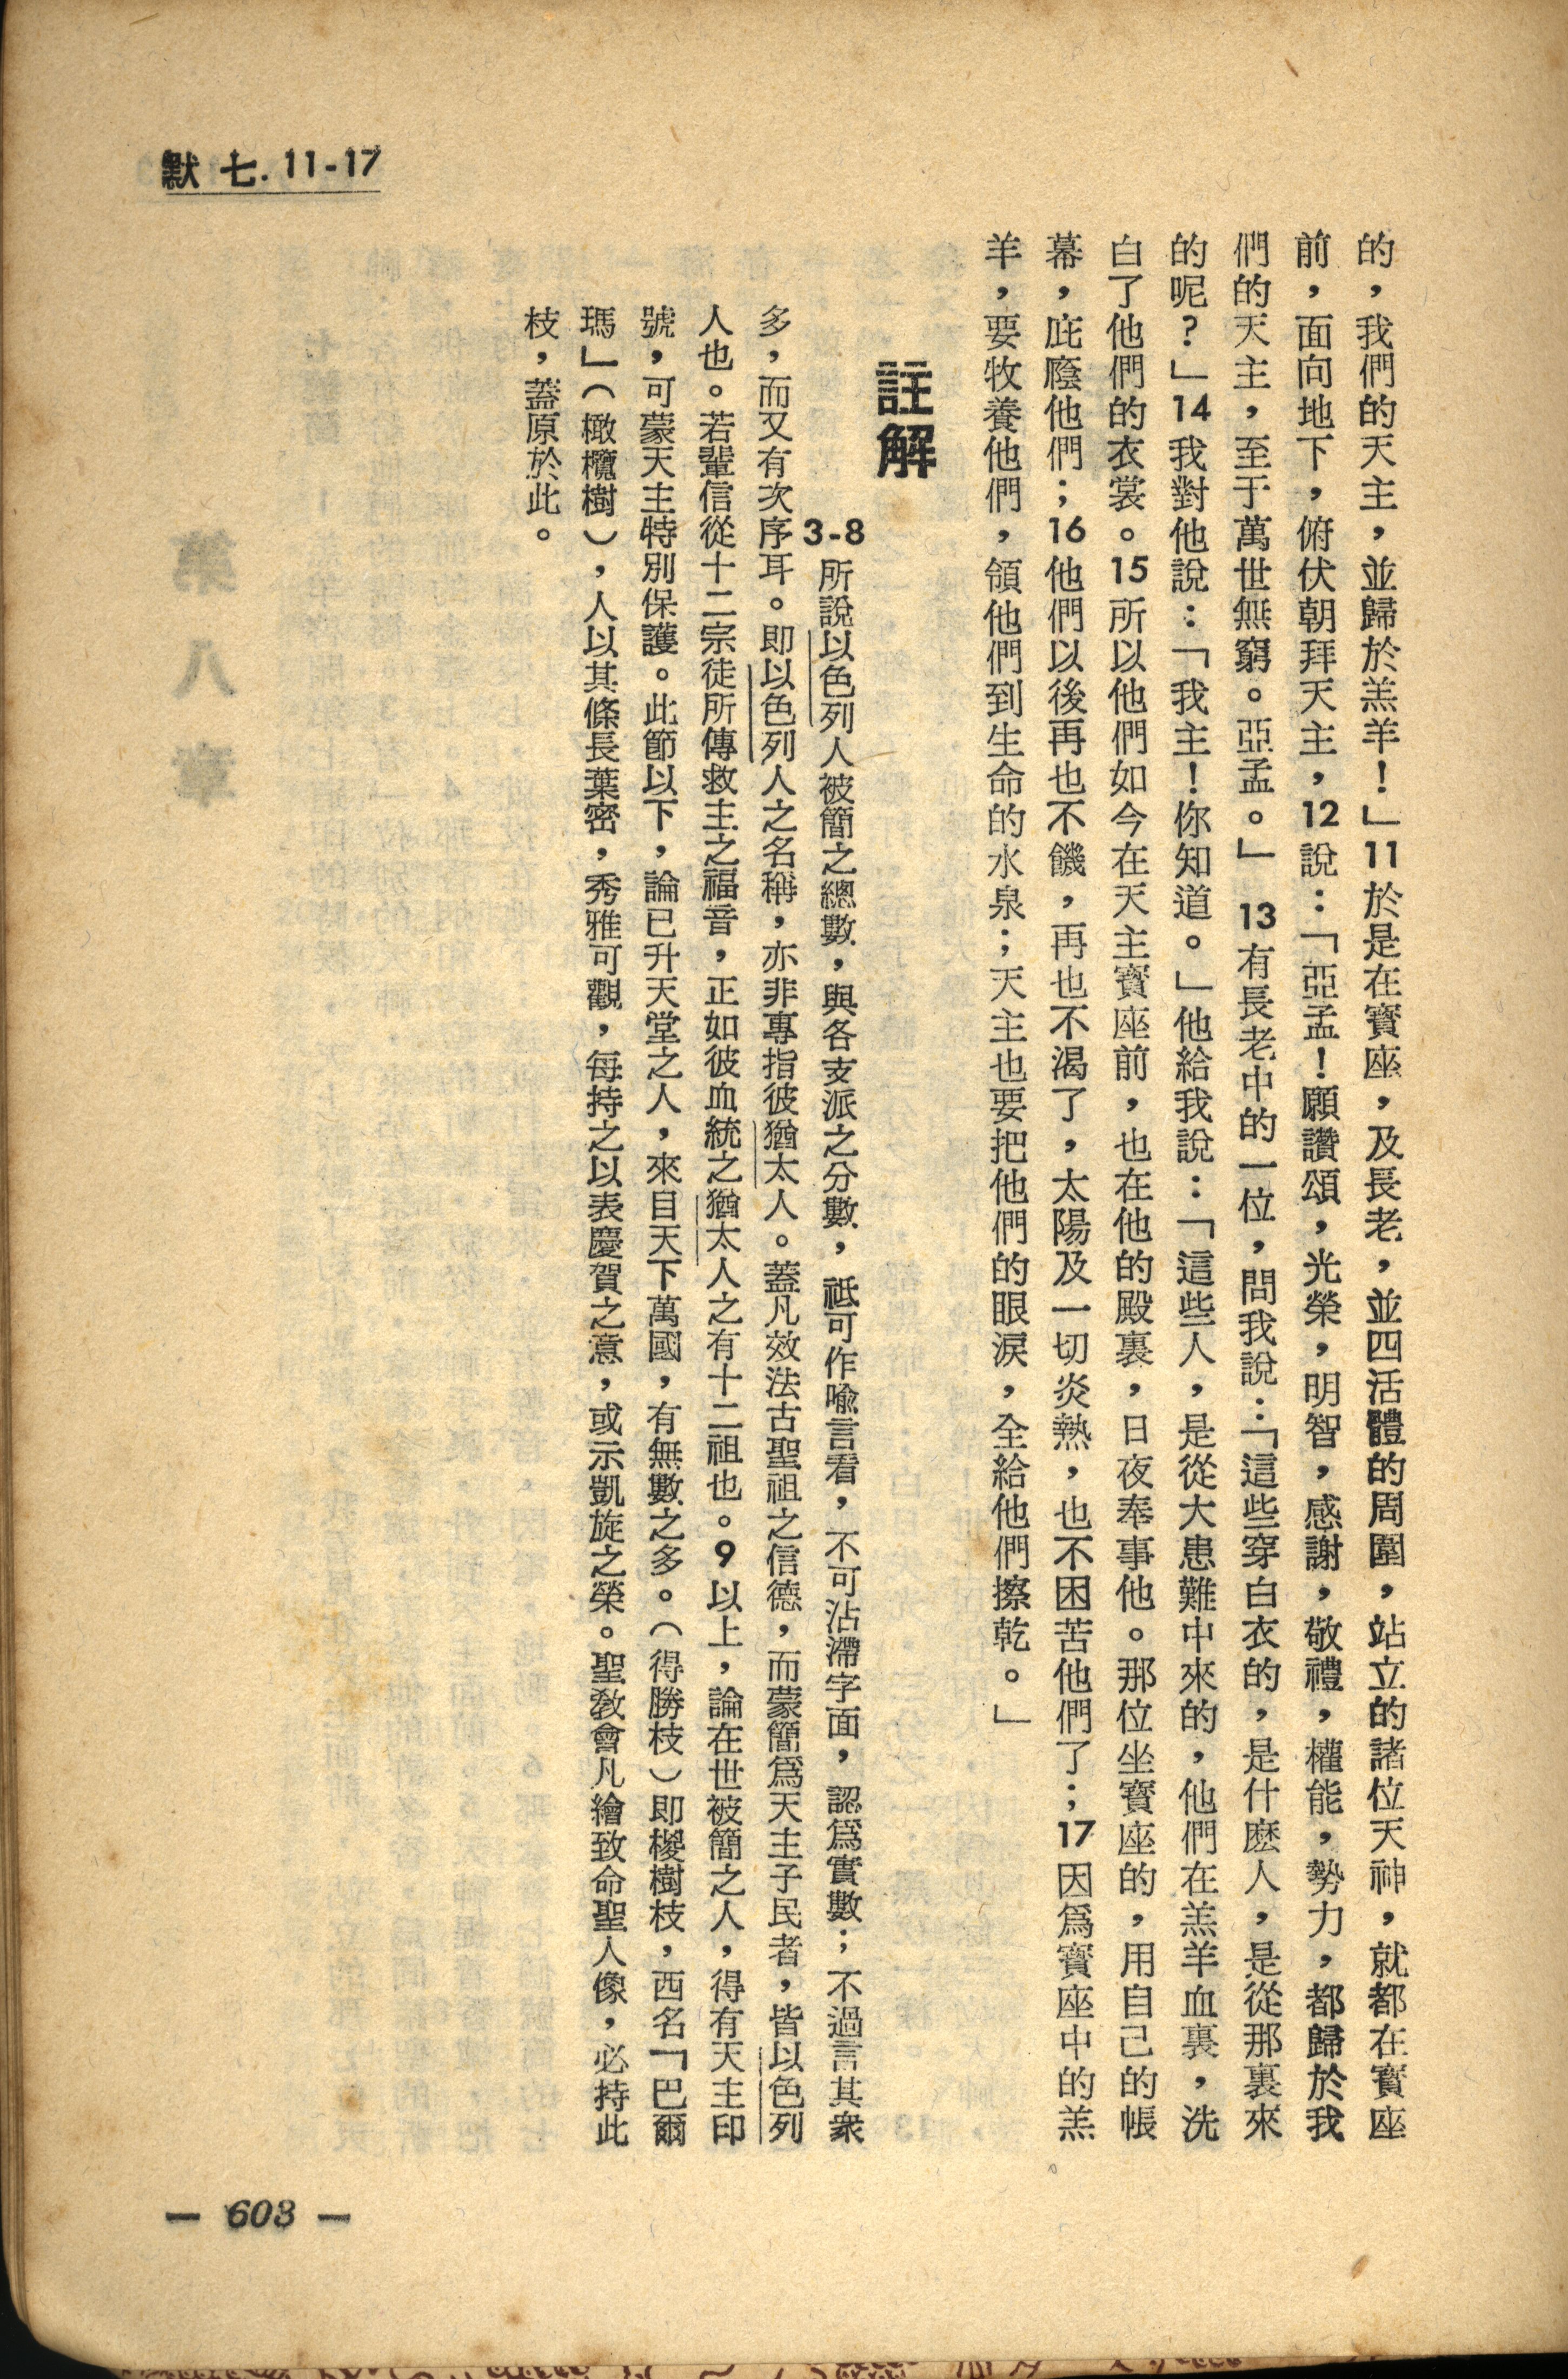 默七. 11-17
的，我們的天主，並歸於羔羊！」11於是在寶座，及長老，並四活體的周圍，站立的諸位天神，就都在寶座
前，面向地下，俯伏朝拜天主，12說：「亞孟！願讚頌，光榮，明智，感謝，敬禮，權能，勢力，都歸於我
們的天主，至于萬世無窮。亞孟。」13有長老中的一位，問我說：「這些穿白衣的，是什麽人，是從那裏來
的呢？」14我對他說：「我主！你知道。」他給我說：「這些人，是從大患難中來的，他們在羔羊血裏，洗
白了他們的衣裳。15所以他們如今在天主寶座前，也在他的殿裏，日夜奉事他。那位坐寶座的，用自己的帳
幕，庇廕他們；16他們以後再也不饑，再也不渴了，太陽及一切炎熱，也不困苦他們了；17因爲寶座中的羔
羊，要牧養他們，領他們到生命的水泉；天主也要把他們的眼淚，全給他們擦乾。」
註解
3-8所說以色列人被簡之總數，與各支派之分數，祗可作喩言看，不可沾滯字面，認爲實數；不過言其衆
多，而又有次序耳。即以色列人之名稱，亦非專指彼猶太人。蓋凡效法古聖祖之信德，而蒙簡爲天主子民者，皆以色列
人也。若輩信從十二宗徒所傳救主之福音，正如彼血統之猶太人之有十二祖也。9以上，論在世被簡之人，得有天主印
號，可蒙天主特別保護。此節以下，論已升天堂之人，來自天下萬國，有無數之多。（得勝枝）即椶樹枝，西名「巴爾
瑪」（橄欖樹），人以其條長葉密，秀雅可觀，每持之以表慶賀之意，或示凱旋之榮。聖教會凡繪致命聖人像，必持此
枝，蓋原於此。
— 603 —